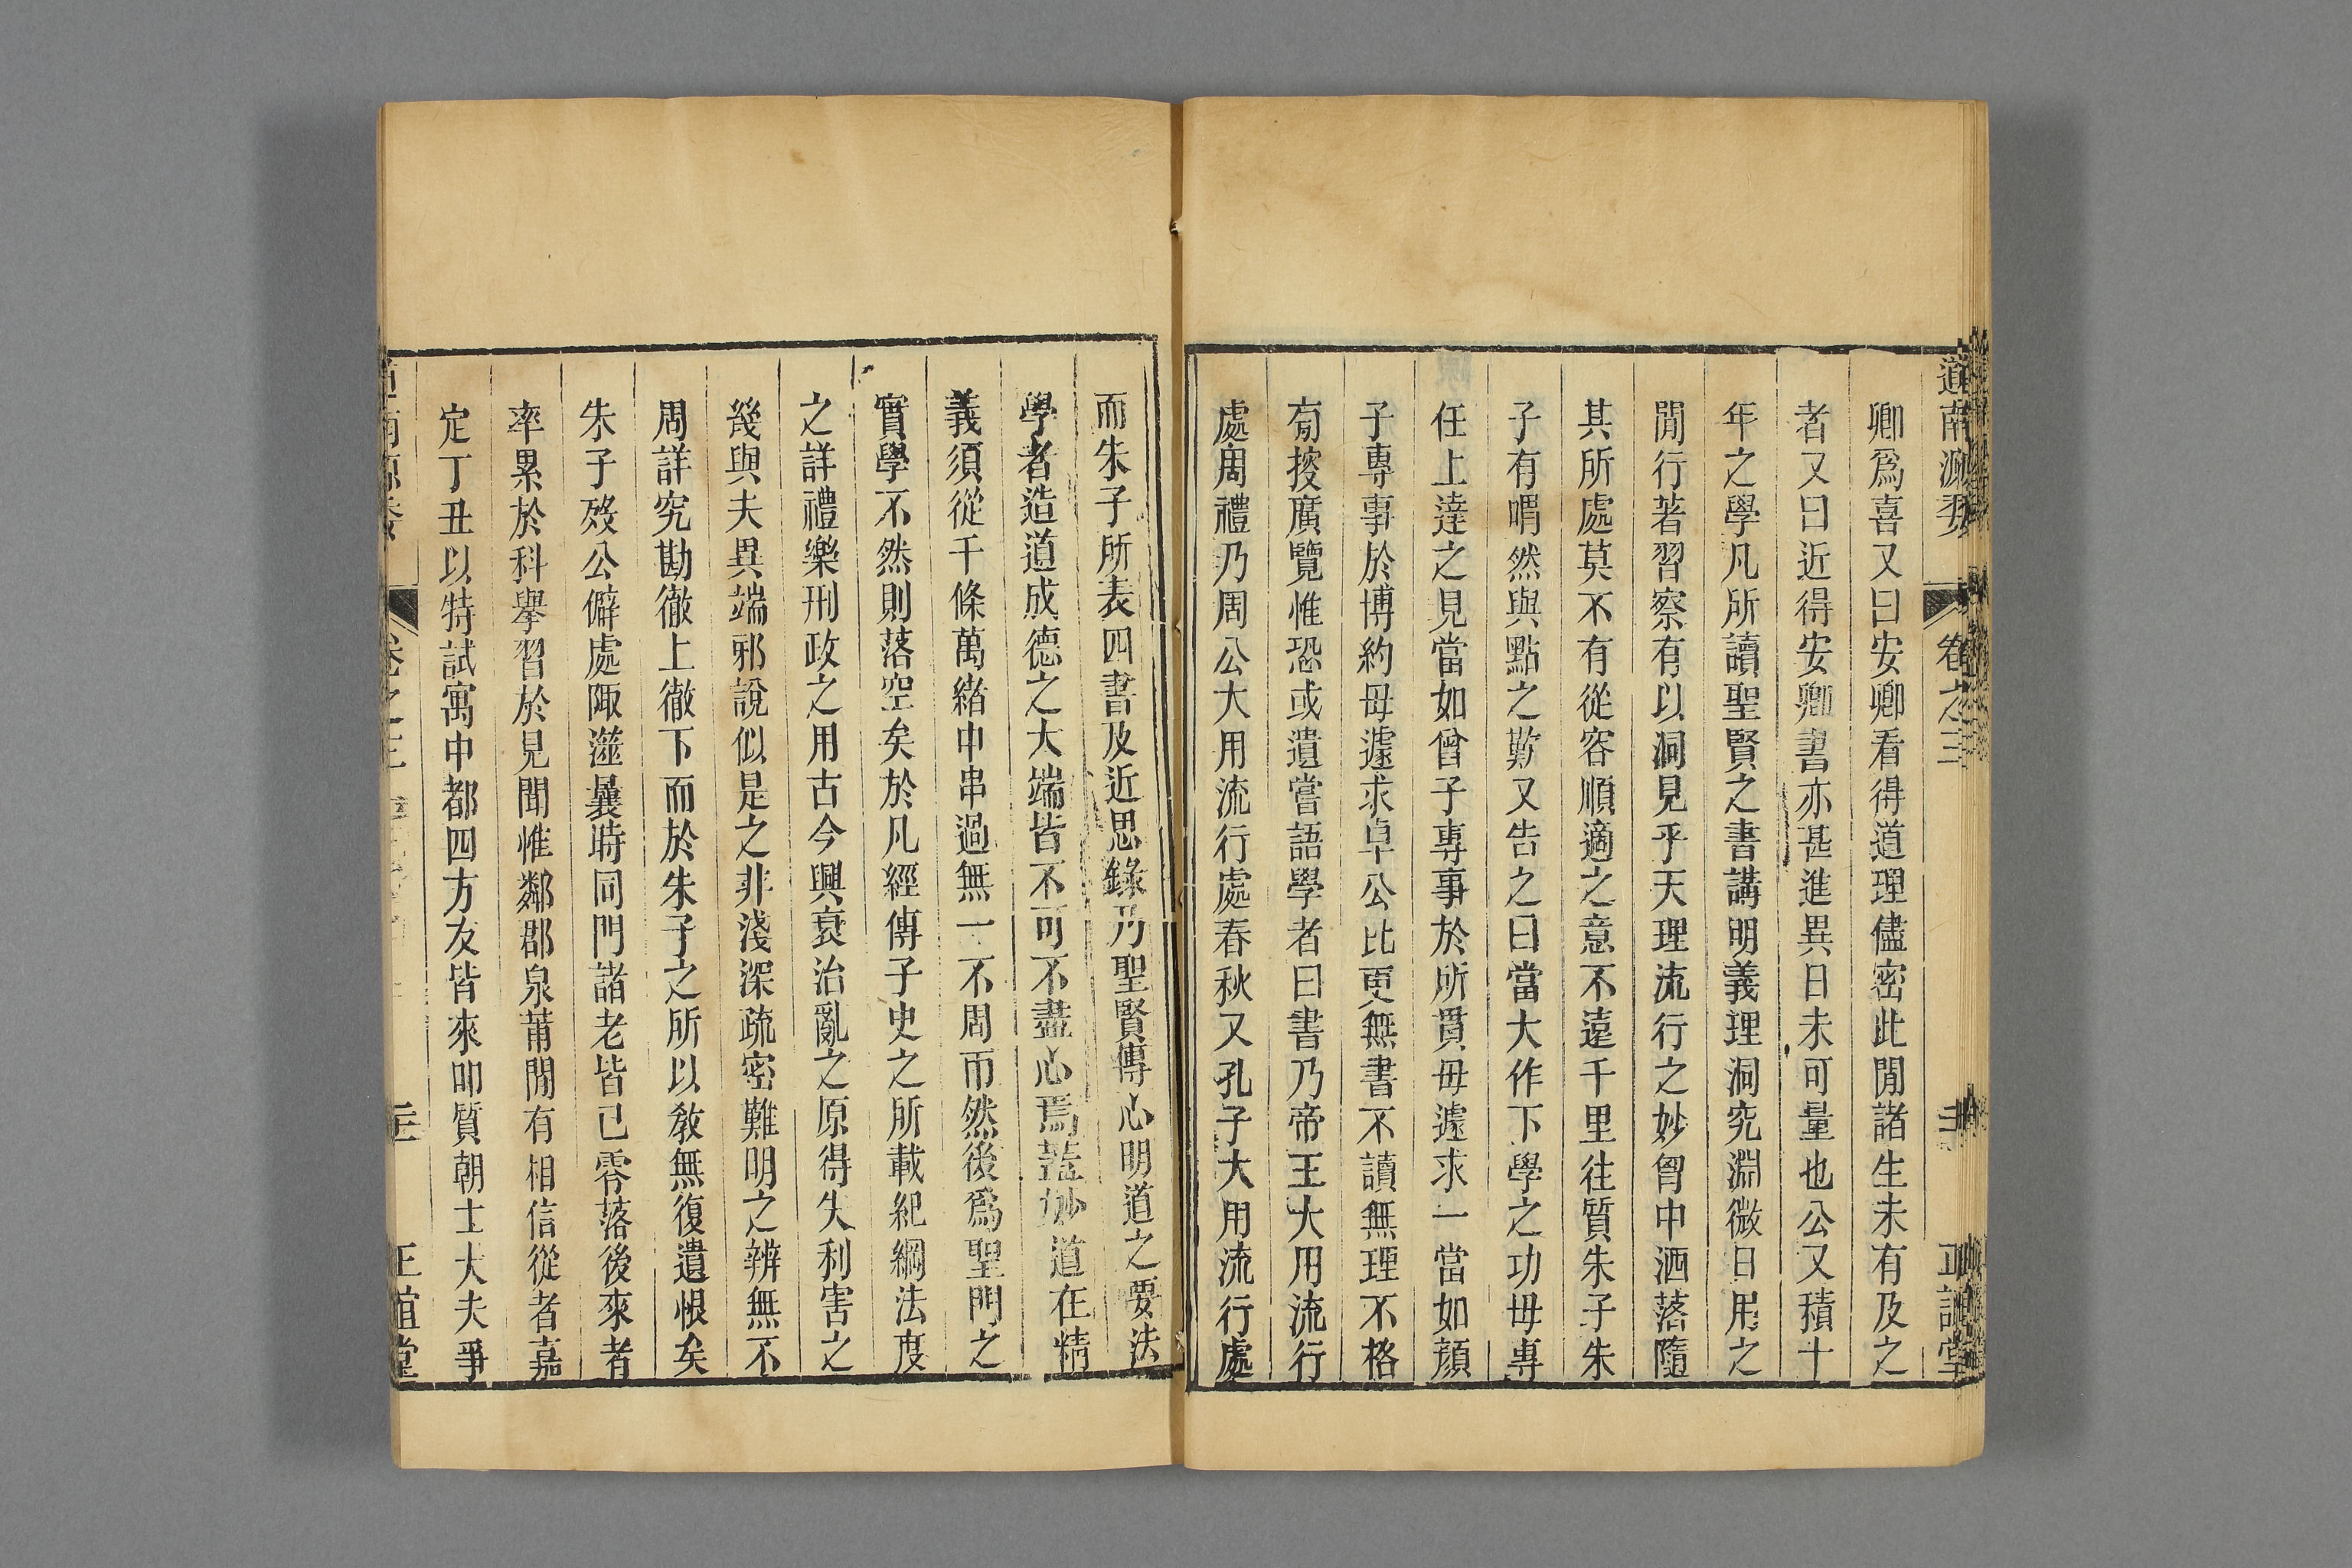 道南源委 卷之三 正誼堂
卿爲喜又曰安卿看得道理儘密此閒諸生未有及之
者又曰近得安卿書亦甚進異日未可量也公又積十
年之學凡所讀聖賢之書講明義理洞究淵微日用之
閒行著習察有以洞見乎天理流行之妙胷中洒落隨
其所處莫不有從容順適之意不遠千里往質朱子朱
子有喟然與點之歎又告之曰當大作下學之功毋專
任上達之見當如曾子專事於所貫毋遽求一當如顏
子專事於博約毋遽求卓公比更無書不讀無理不格
有㨿廣覽惟恐或遺嘗語學者曰書乃帝王大用流行
處周禮乃周公大用流行處春秋又孔子大用流行處
而朱子所表四書及近思錄乃聖賢傳心明道之要法
學者造道成德之大端皆不可不盡心焉蓋妙道在精
義須從千條萬緒中串過無一不周而然後爲聖門之
實學不然則落空矣於凡經傳子史之所載紀綱法度
之詳禮樂刑政之用古今興衰治亂之原得失利害之
幾與夫異端邪說似是之非淺深疏密難明之辨無不
周詳究勘徹上徹下而於朱子之所以敎無復遺恨矣
朱子歿公僻處陬澨曩時同門諸老皆已零落後來者
率累於科舉習於見聞惟鄰郡泉莆閒有相信從者嘉
定丁丑以特試寓中都四方友皆來叩質朝士大夫爭
道南源委 卷之三 正誼堂